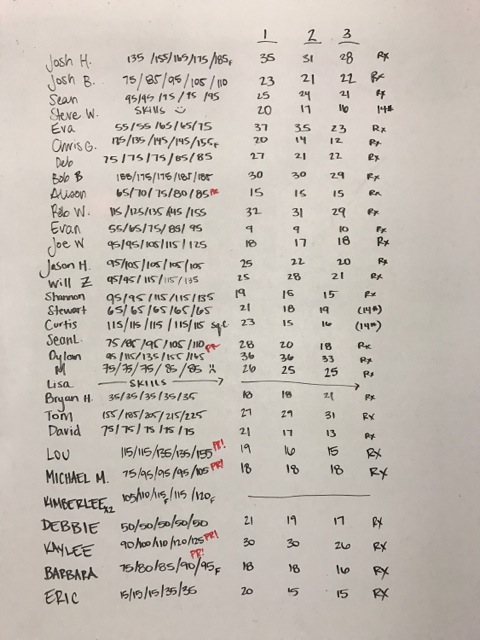 1 2 3
Josh H. 135/155/165/175/185F 35 31 28 Rx
Josh B. 75/85/95/105/110 23 21 22 Rx
Sean 95/95/95/95/95 25 24 21 Rx
Steve W. SKILLS 20 17 16 14#
Eva 55/55/65/65/75 37 35 23 Rx
Chris G. 135/145/145/155F 20 14 12 Rx
Deb 75/75/75/85/85 27 21 22 Rx
Bob B /175/175/185/185 30 30 29 Rx
Alison 65/70/75/80/85 PR 15 15 15 Rx
Rob W. 115/125/135/145/155 32 31 29 Rx
Evan 55/65/75/85/95 9 9 10 Rx
Joe W 95/95/105/115/125 18 17 18 Rx
Jason H. 95/105/105/105/105 25 22 20 Rx
Will Z 95/95/115/115/135 25 28 21 Rx
Shannon 95/95/115/115/135 19 15 Rx
Stewart 65/65/65/65/65 21 18 19 (14#)
Curtis 115/115/115/115/115 23 15 16 (14#)
Sean L. 75/85/95/105/110 PR 28 20 18 Rx
Dylan 95/115/135/155/165 36 36 33 Rx
M 75/75/75/85/85 26 25 25 Rx
Lisa SKILLS
Bryan H. 35/35/35/35/35 18 18 21 Rx
Tom 155/185/205/215/225 27 29 31 RX
David 75/75/75/75/75 21 17 13 Rx
LOU 115/115/135/135/155 PR! 19 16 15 Rx
MICHAEL M. 75/95/95/95/105 PR! 18 18 18 RX
KIMBERLEE x2 105/110/115F/115/120F
DEBBIE 50/50/50/50/50 21 19 17 RX
KAYLEE 90/100/110/120/125 PR! 30 30 26 RX
BARBARA 75/80/85/90/95F PR! 18 18 16 RX
ERIC 15/15/15/35/35 20 15 15 RX